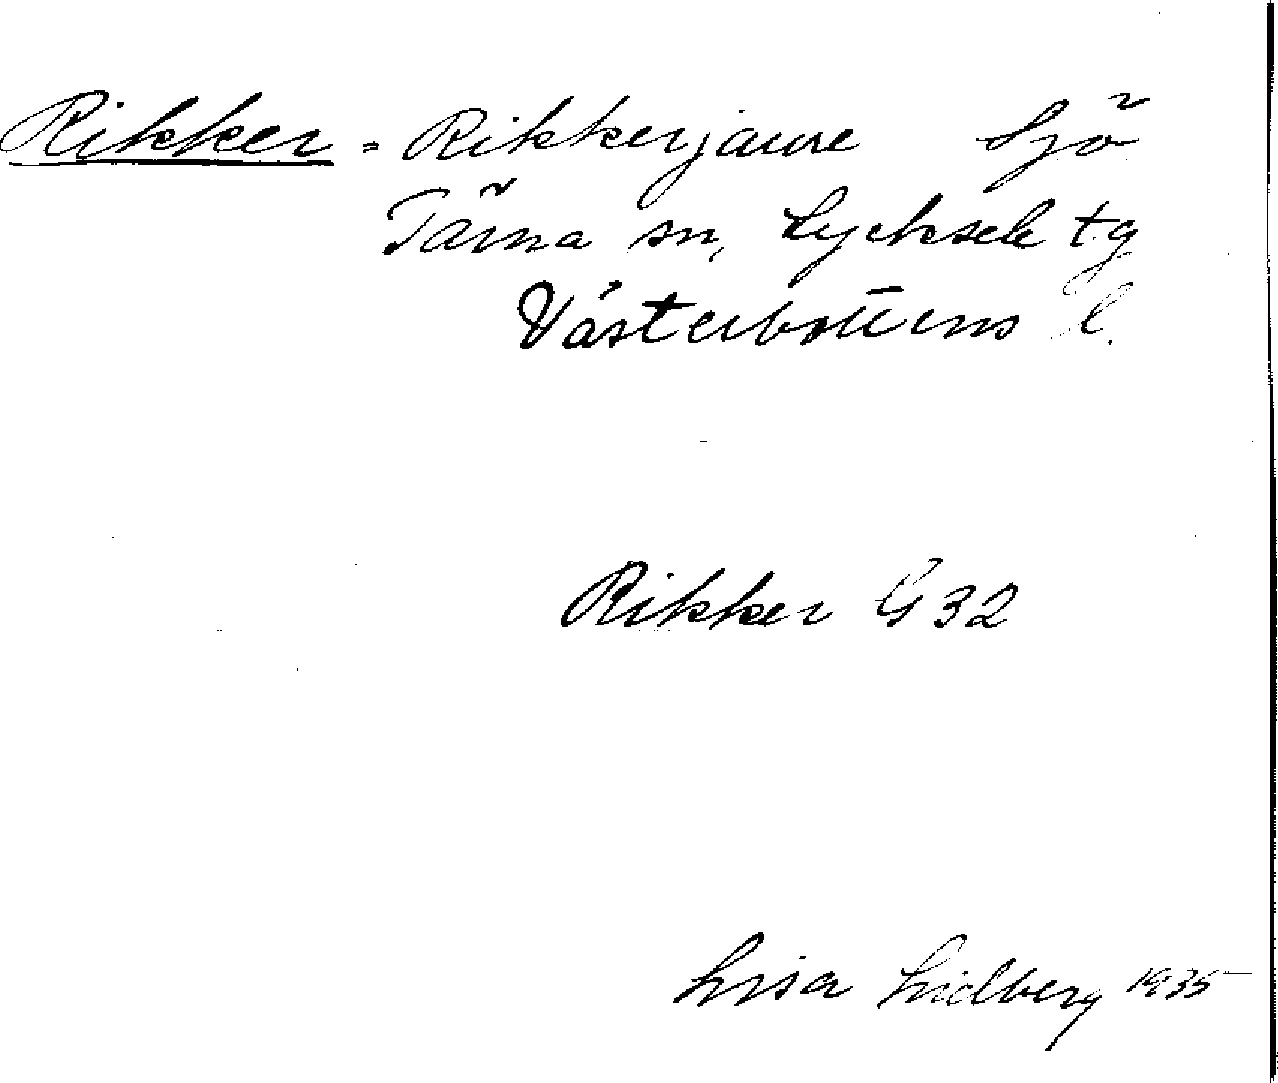 Rikker = Rikkerjaure Sjö
Tärna sn, Lycksele tg
Västerbottens l.
Rikker G 32
Lisa Lidberg 1935